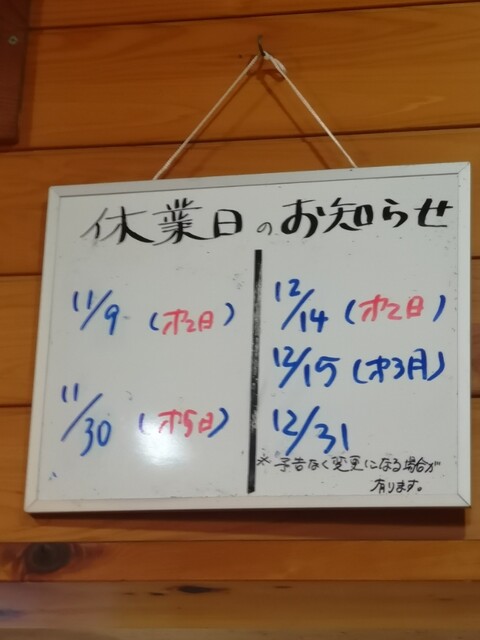 休業日のお知らせ
11/9 (才2日)
11/30 (才5日)
12/14 (才2日)
12/15 (才3月)
12/31
※予告なく変更になる場合が
有ります。